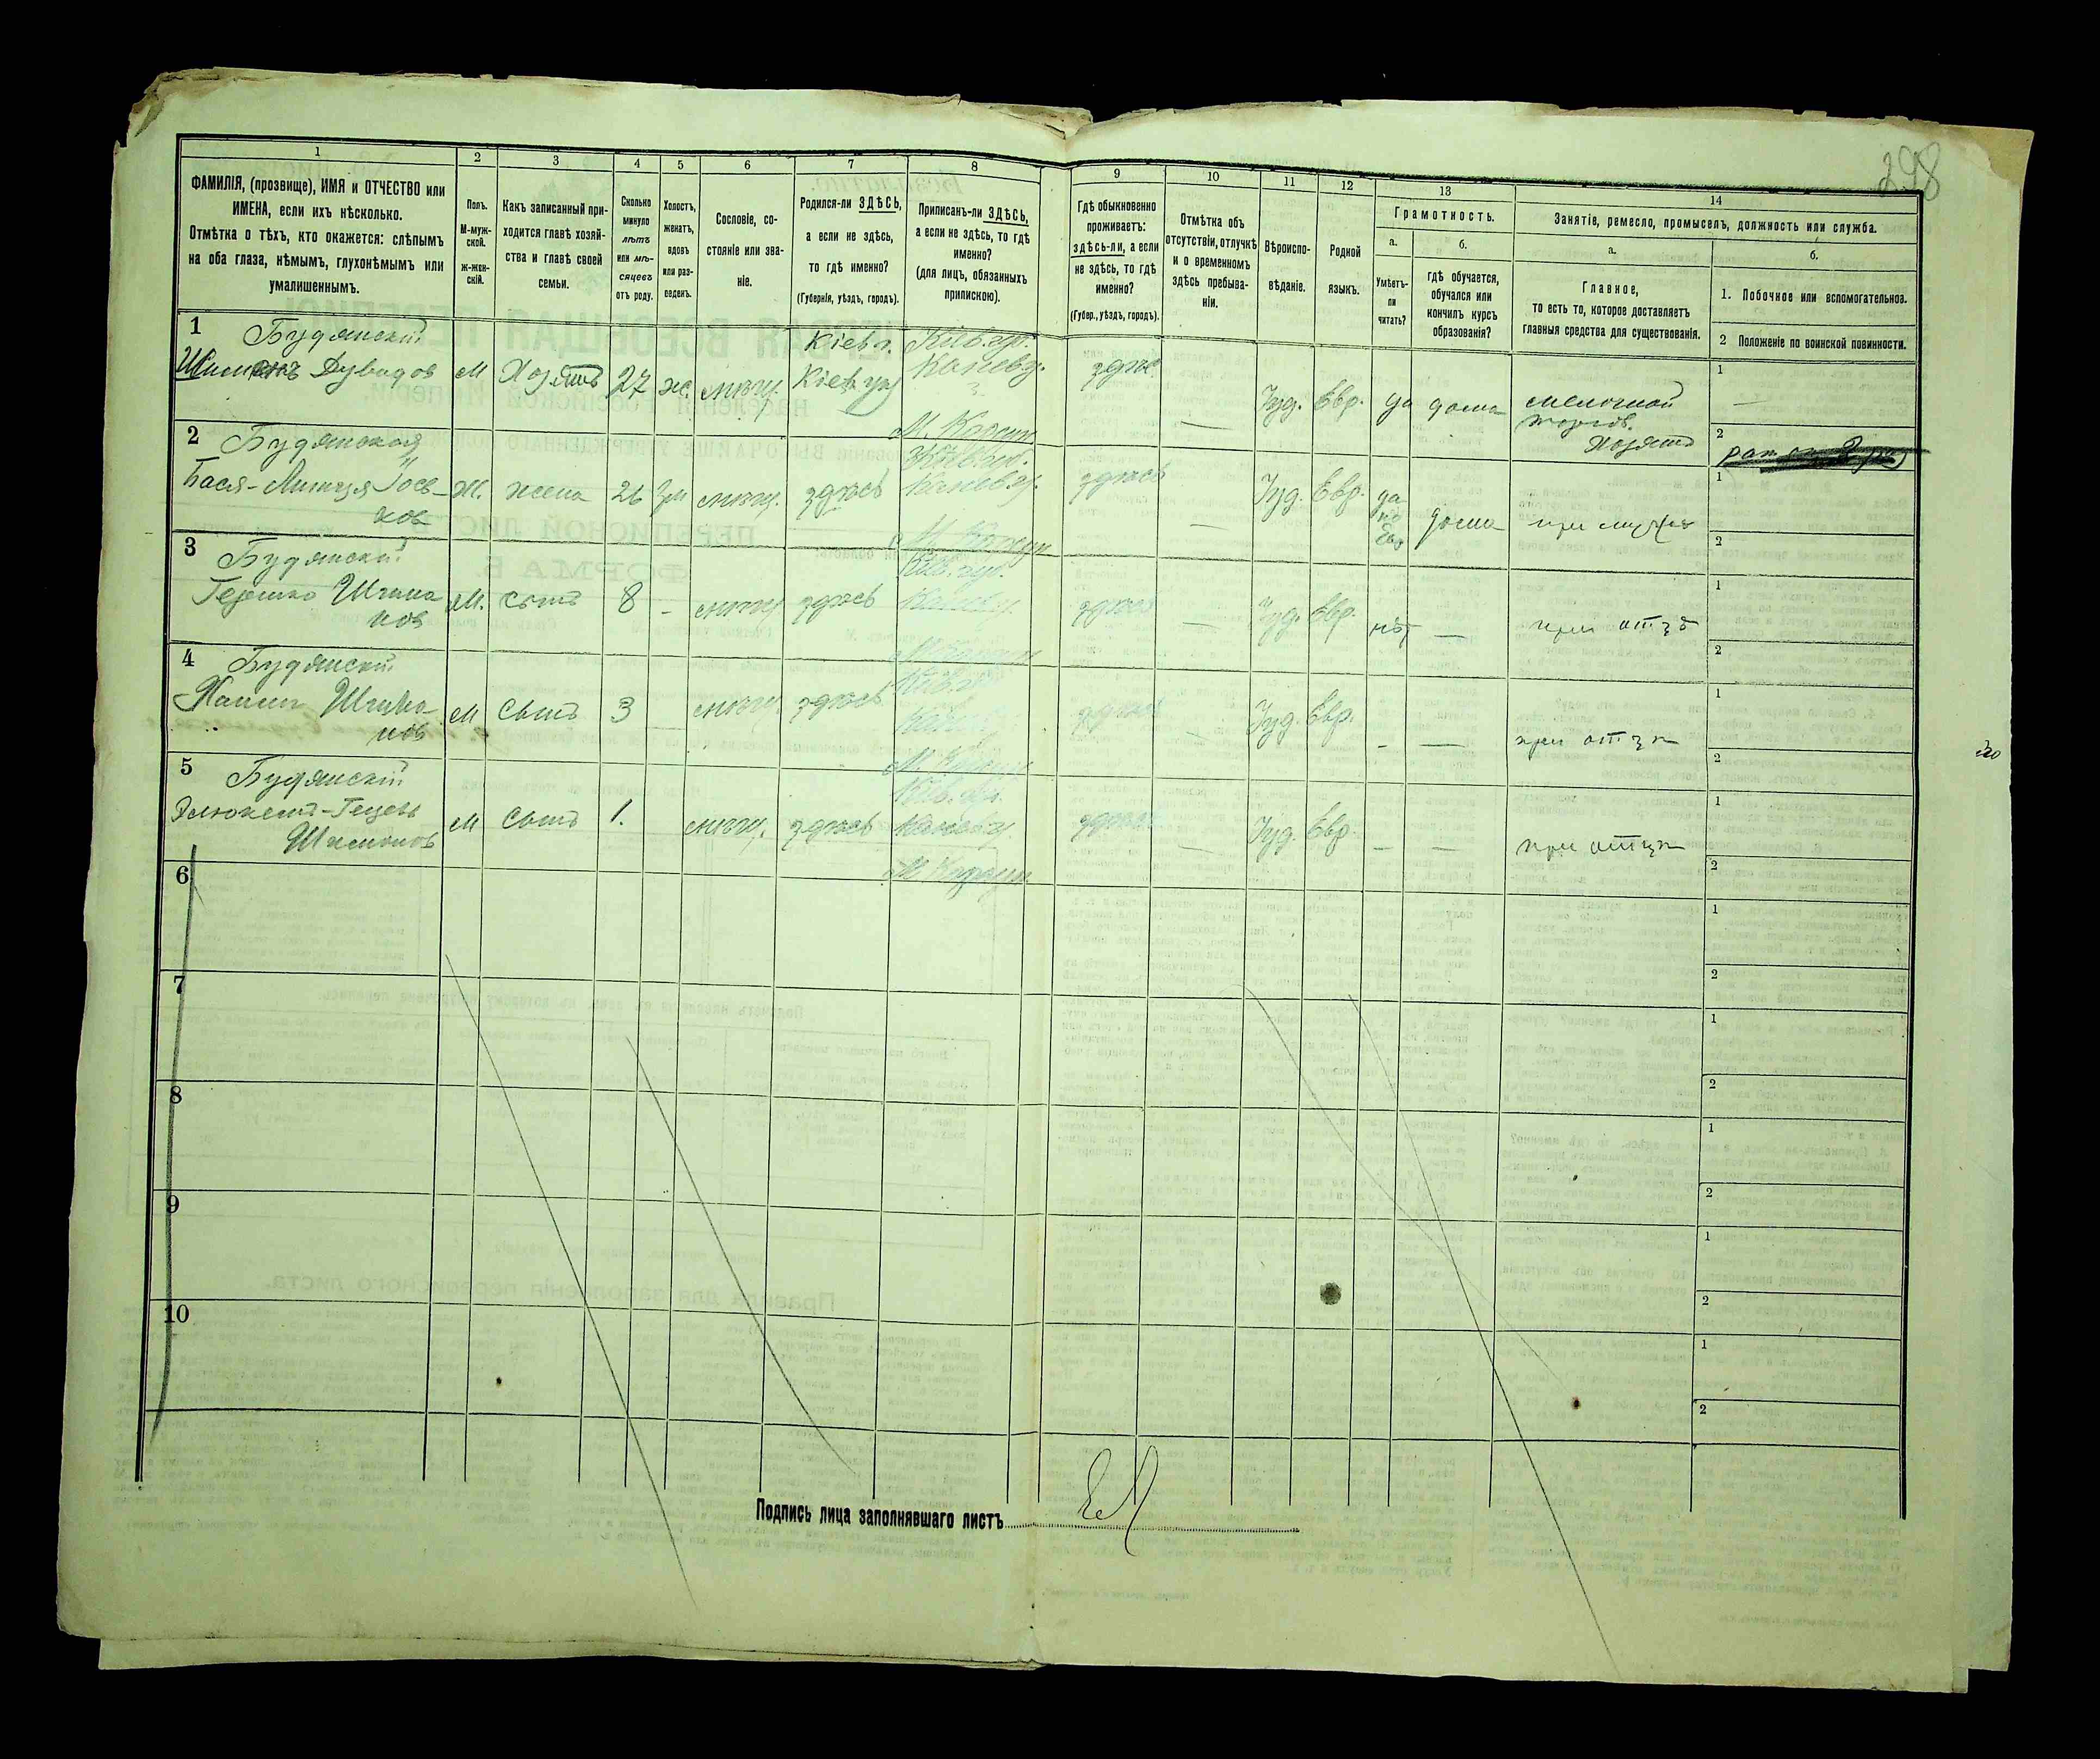 298
1
2
3
4
5
6
7
8
9
10
11
12
13
14
ФАМИЛІЯ, (прозвище), ИМЯ и ОТЧЕСТВО или
ИМЕНА, если ихъ нѣсколько.
Отмѣтка о тѣхъ, кто окажется: слѣпымъ
на оба глаза, нѣмымъ, глухонѣмымъ или
умалишеннымъ.
Полъ.
М-муж-
ской.
ж-жен-
скій.
Какъ записанный при-
ходится главѣ хозяй-
ства и главѣ своей
семьи.
Сколько
минуло
лѣтъ
или мѣ-
сяцевъ
отъ роду.
Холостъ,
женатъ,
вдовъ
или раз-
веденъ.
Сословіе, со-
стояніе или зва-
ніе.
Родился-ли ЗДѢСЬ,
а если не здѣсь,
то гдѣ именно?
(Губернія, уѣздъ, городъ).
Приписанъ-ли ЗДѢСЬ,
а если не здѣсь, то гдѣ
именно?
(для лицъ, обязанныхъ
припискою).
Гдѣ обыкновенно
проживаетъ:
здѣсь-ли, а если
не здѣсь, то гдѣ
именно?
(Губер., уѣздъ, городъ).
Отмѣтка объ
отсутствіи, отлучкѣ
и о временномъ
здѣсь пребыва-
ніи.
Вѣроиспо-
вѣданіе.
Родной
языкъ.
Грамотность.
а.
Умѣетъ-
ли
читать?
б.
Гдѣ обучается,
обучался или
кончилъ курсъ
образованія?
Занятіе, ремесло, промыселъ, должность или служба.
а.
Главное,
то есть то, которое доставляетъ
главныя средства для существованія.
б.
1. Побочное или вспомогательное.
2 Положеніе по воинской повинности.
1
Будянскій
Дувидов
М
Хозяинъ
27
ж.
мѣщ.
Кіев г.
Кіев уѣз
Кіев. гу.
Канев у.
М. Корсун
здѣсь
—
Іуд.
Евр.
да
дома
мелочной
торгов.
Хозяинъ
1
—
2
2
Будянская
Бася-
Ж.
жена
26
зм
мѣщ.
здѣсь
Кіев. губ.
Канев у.
М. Корсун
здѣсь
—
Іуд.
Евр.
да
по
Евр
дома
при мужѣ
1
2
3
Будянскій
Гершко Шимо
нов
М.
сынъ
8
-
мѣщ
здѣсь
Кіев. гу.
Канев у.
М. Корсун
здѣсь
—
Іуд.
Евр.
нѣт
—
при отцѣ
1
2
4
Будянскій
Хаим Шимо
нов
М
сынъ
3
—
мѣщ.
здѣсь
Кіев. гу
Канев у.
М. Корсун
здѣсь
—
Іуд.
Евр.
-
—
при отцѣ
1
2
5
Будянскій
Шимонов
М
сынъ
1.
мѣщ.
здѣсь
Кіев. гу.
Канев у.
М. Корсун
здѣсь
—
Іуд.
Евр.
—
—
при отцѣ
1
2
6
1
2
7
1
2
8
1
2
9
1
2
10
1
2
Подпись лица заполнявшаго листъ